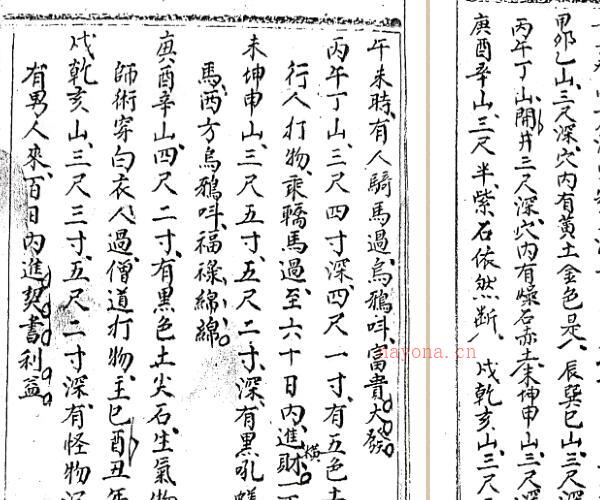 甲卯乙山、三尺深、穴內有黃土金色是、辰巽巳山、三
丙午丁山、開井三尺深、穴內有燥石赤土、未坤申山、三尺深
庚酉辛山、三尺半、紫石依然断、戌乾亥山、三尺
午未時、有人騎馬過、烏鴉呌、富貴大發
丙午丁山、三尺四寸深、四尺一寸、有五色土
行人打物、乘轎馬過、至六十日內、進橫財
未坤申山、三尺五寸、五尺二寸、深、有黑
馬、西方烏鴉呌、福祿綿綿
庚酉辛山、四尺二寸、有黑色土尖石、生氣物
師術穿白衣人過、僧道打物、主巳酉丑年
戌乾亥山、三尺三寸、五尺二寸深、有怪物
有男人來、百日內進契書利益
nayona.cn